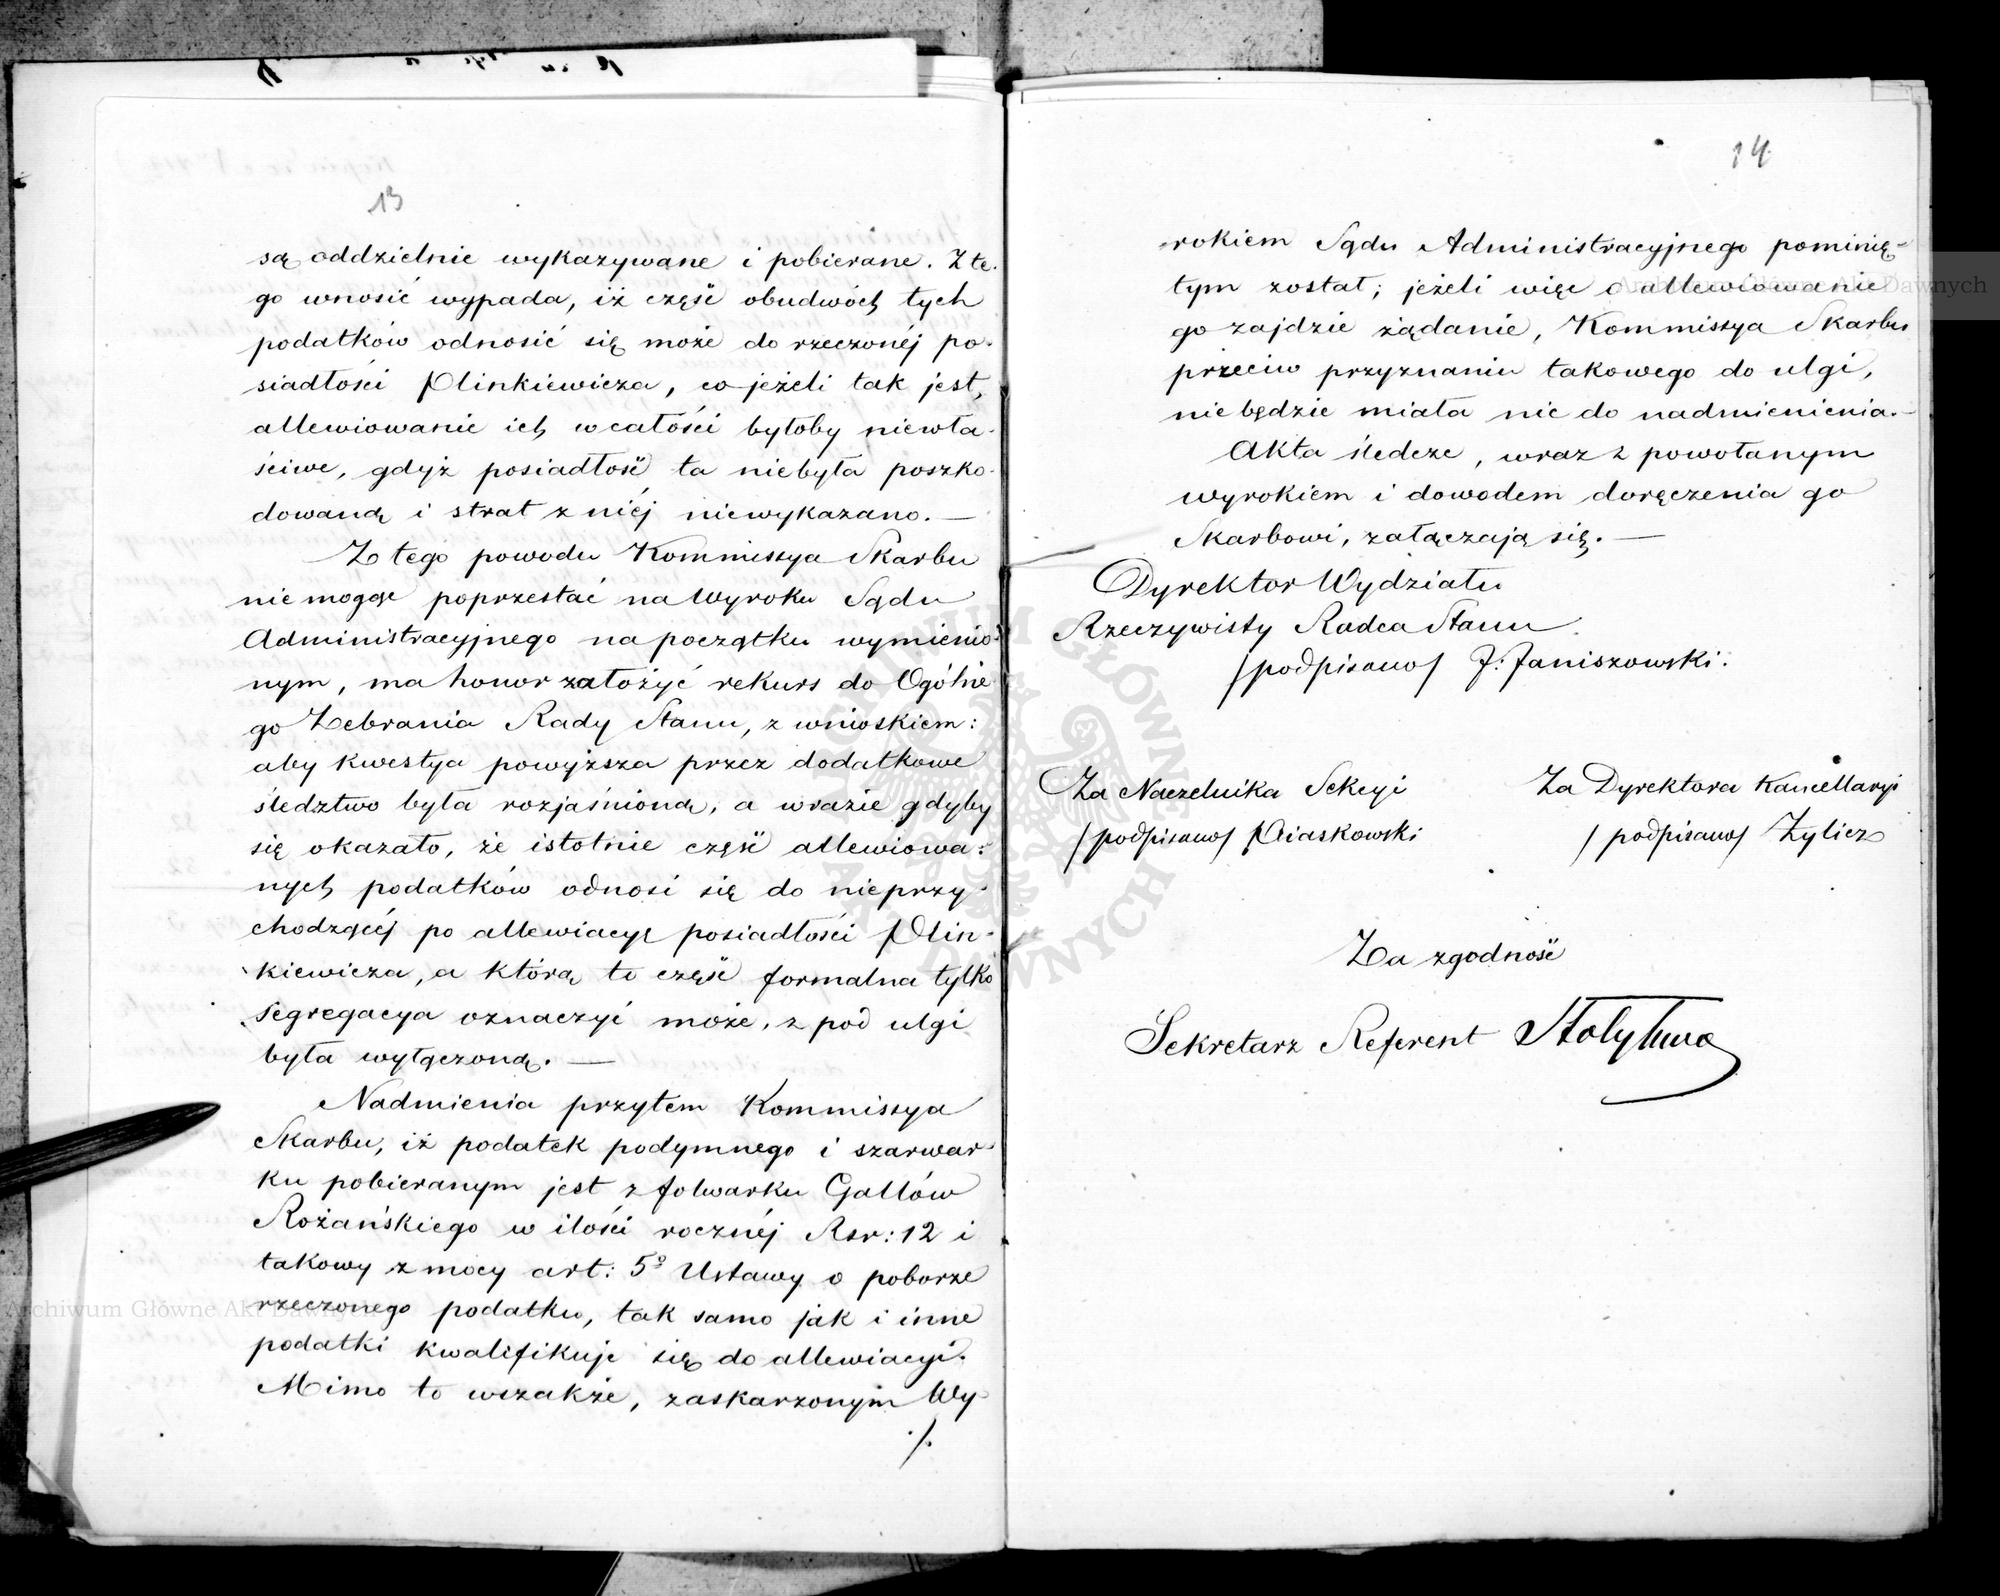 13
są oddzielnie wykazywane i pobierane. Z te-
go wnosić wypada, iż część obudwóch tych
podatków odnosić się może do rzeczonéj po-
siadłości Plinkiewicza, co jeżeli tak jest,
allewiowanie ich w całości byłoby niewła-
ściwe, gdyż posiadłość ta niebyła poszko-
dowaną i strat z niéj niewykazano. —
Z tego powodu Kommissya Skarbu
niemogąc poprzestać na Wyroku Sądu
Administracyjnego na początku wymienio-
nym, ma honor założyć rekurs do Ogólne-
go Zebrania Rady Stanu, z wnioskiem:
aby kwestya powyższa przez dodatkowe
śledztwo była rozjaśnioną, a wrazie gdyby
się okazało, że istotnie część allewiowa-
nych podatków odnosi się do nieprzy-
chodzącéj po allewiacyę posiadłości Plin-
kiewicza, a którą to część formalna tylko
segregacya oznaczyć może, z pod ulgi
była wyłączoną. —
Nadmienia przytem Kommissya
Skarbu, iż podatek podymnego i szarwar-
ku pobieranym jest z folwarku Gallów
Rożańskiego w ilości rocznéj Rsr: 12 i
takowy z mocy art: 5º Ustawy o poborze
rzeczonego podatku, tak samo jak i inne
podatki kwalifikuje się do allewiacyi.
Mimo to wszakże, zaskarzonym Wy-
./.
14
rokiem Sądu Administracyjnego pominię-
tym został; jeżeli więc o allewiowanie
go zajdzie żądanie, Kommissya Skarbu
przeciw przyznaniu takowego do ulgi,
niebędzie miała nic do nadmienienia. —
Akta śledcze, wraz z powołanym
wyrokiem i dowodem doręczenia go
Skarbowi, załączają się. —
Dyrektor Wydziału
Rzeczywisty Radca Stanu
/podpisano/ J. Janiszowski.
Za Naczelnika Sekcyi
/podpisano/ Piaskowski
Za Dyrektora Kancellaryi
/podpisano/ Zylicz
Za zgodność
Sekretarz Referent
Archiwum Główne Akt Dawnych
Archiwum Główne Akt Dawnych
ARCHIWUM GŁÓWNE AKT DAWNYCH